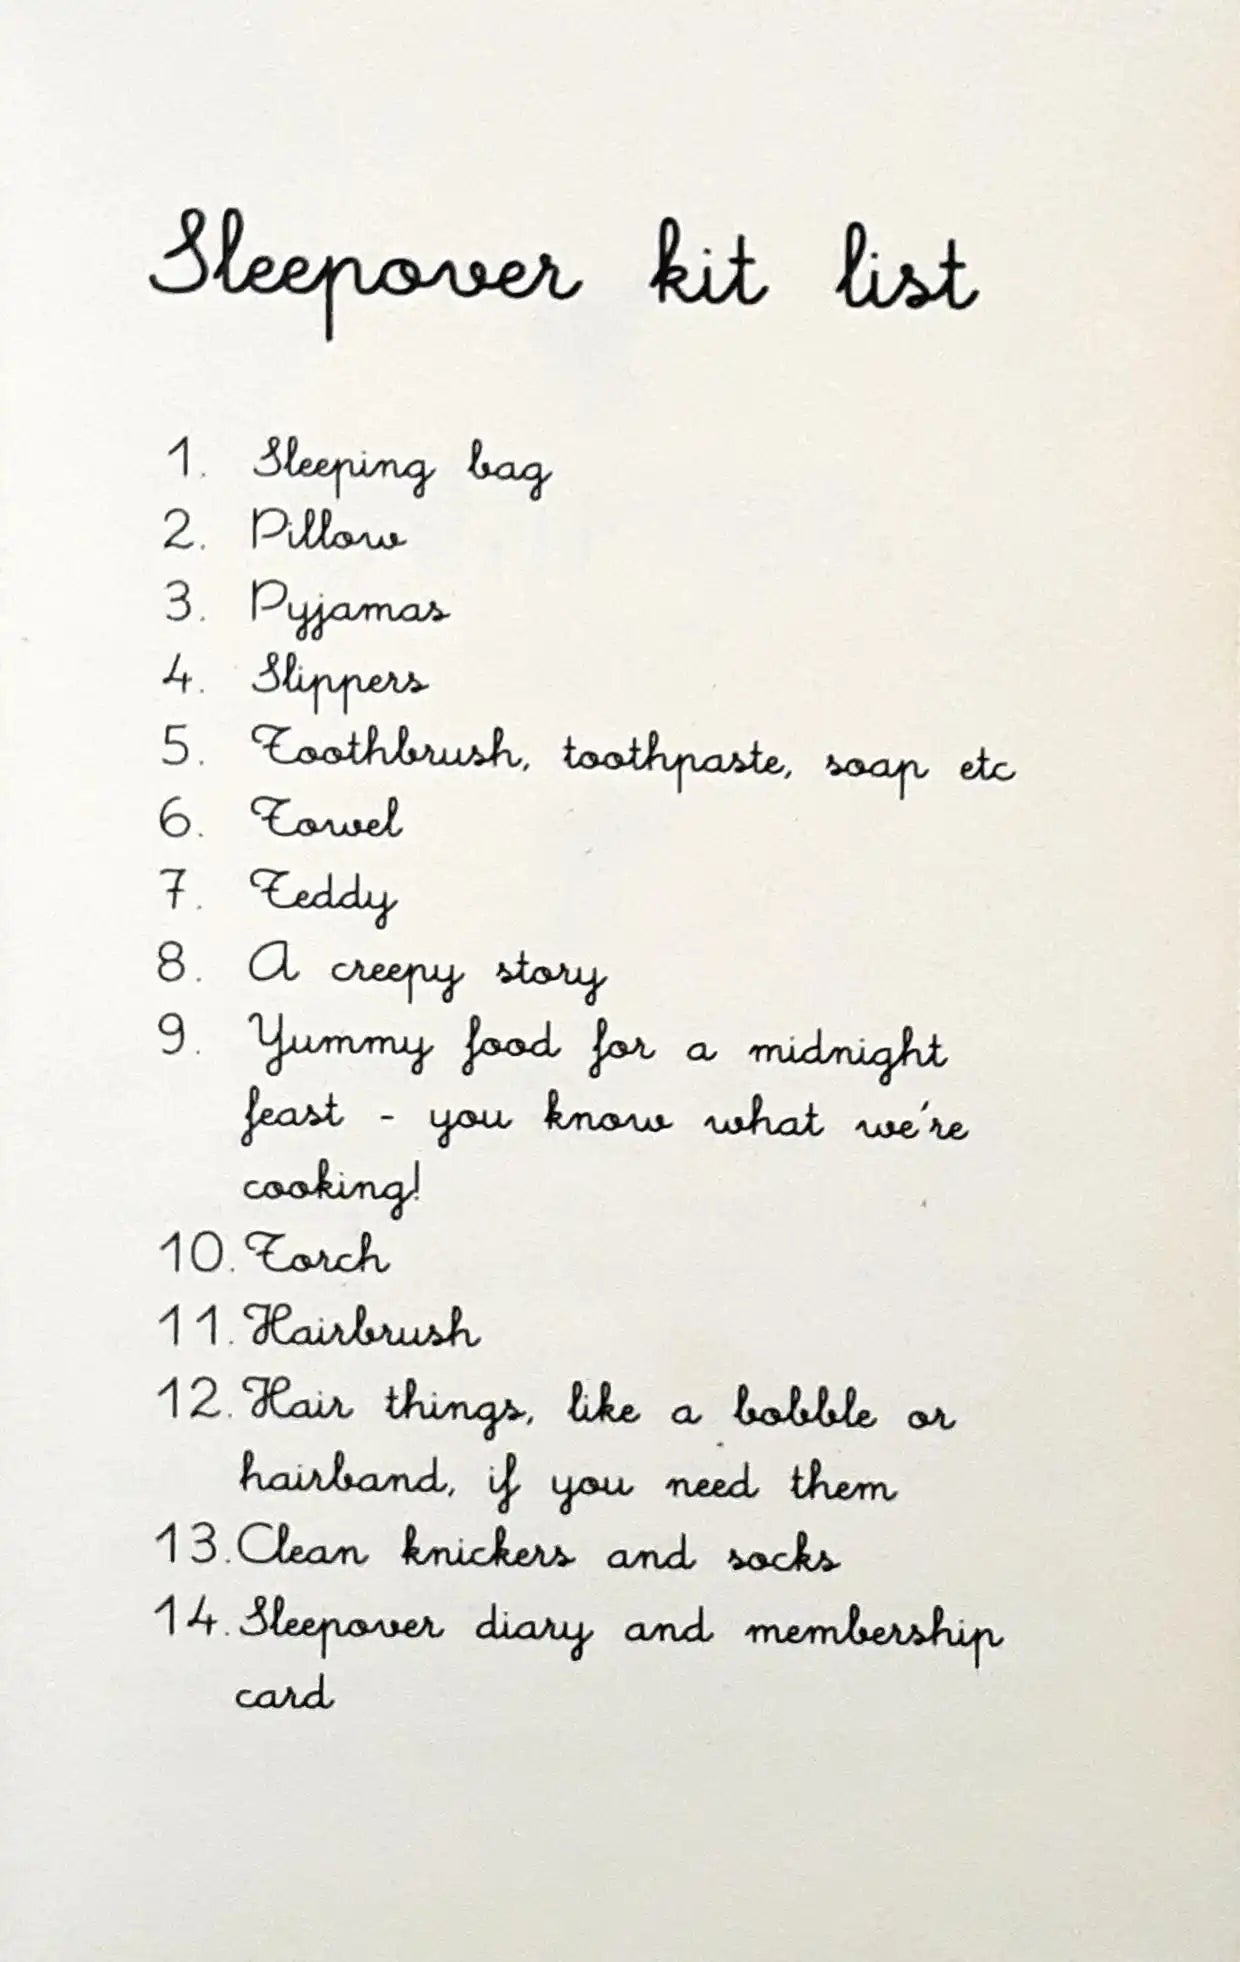 Sleepover kit list
1. Sleeping bag
2. Pillow
3. Pyjamas
4. Slippers
5. Toothbrush, toothpaste, soap etc
6. Towel
7. Teddy
8. A creepy story
9. Yummy food for a midnight
feast - you know what we're
cooking!
10. Torch
11. Hairbrush
12. Hair things, like a bobble or
hairband, if you need them
13. Clean knickers and socks
14. Sleepover diary and membership
card